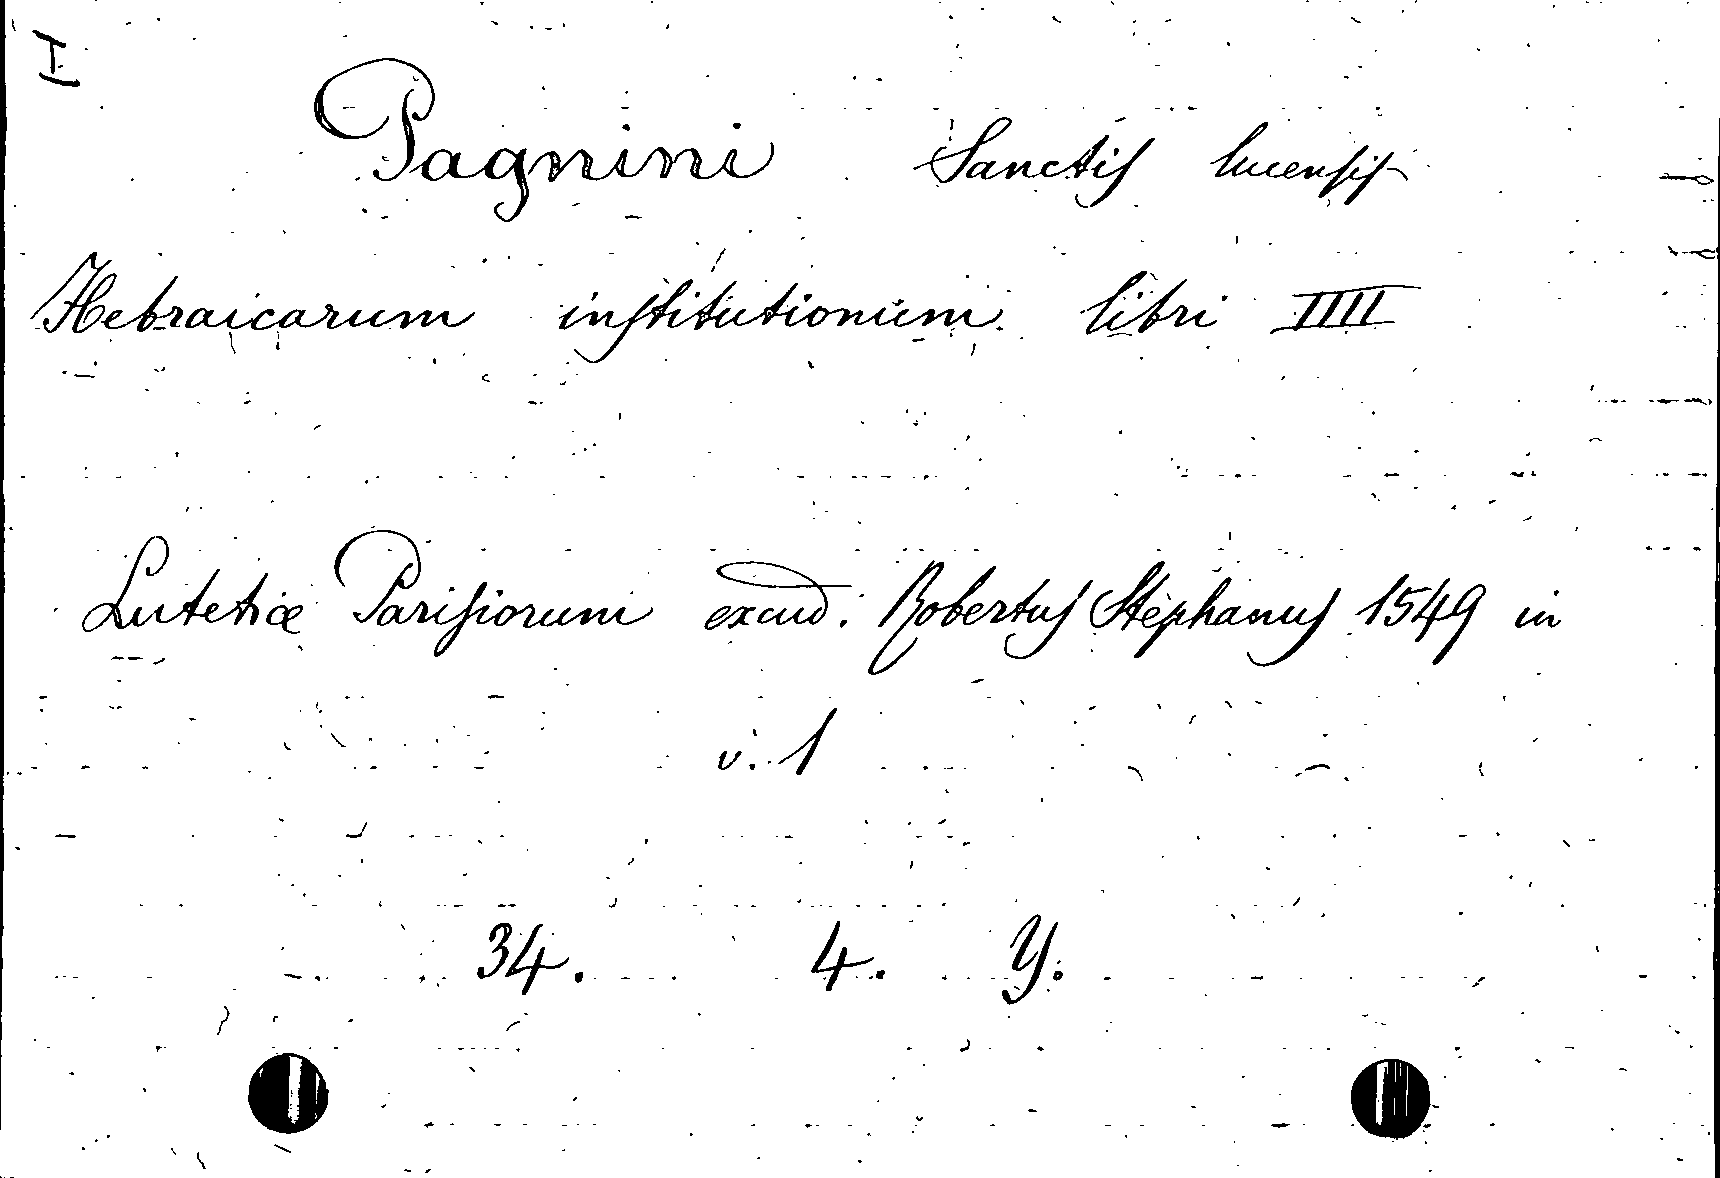 I
Pagnini Sanctis lucensis
Hebraicarum institutionum libri IIII
Lutetiæ Parisiorum excud. Robertus Stephanus 1549 in
v. 1
34. 4. Y.